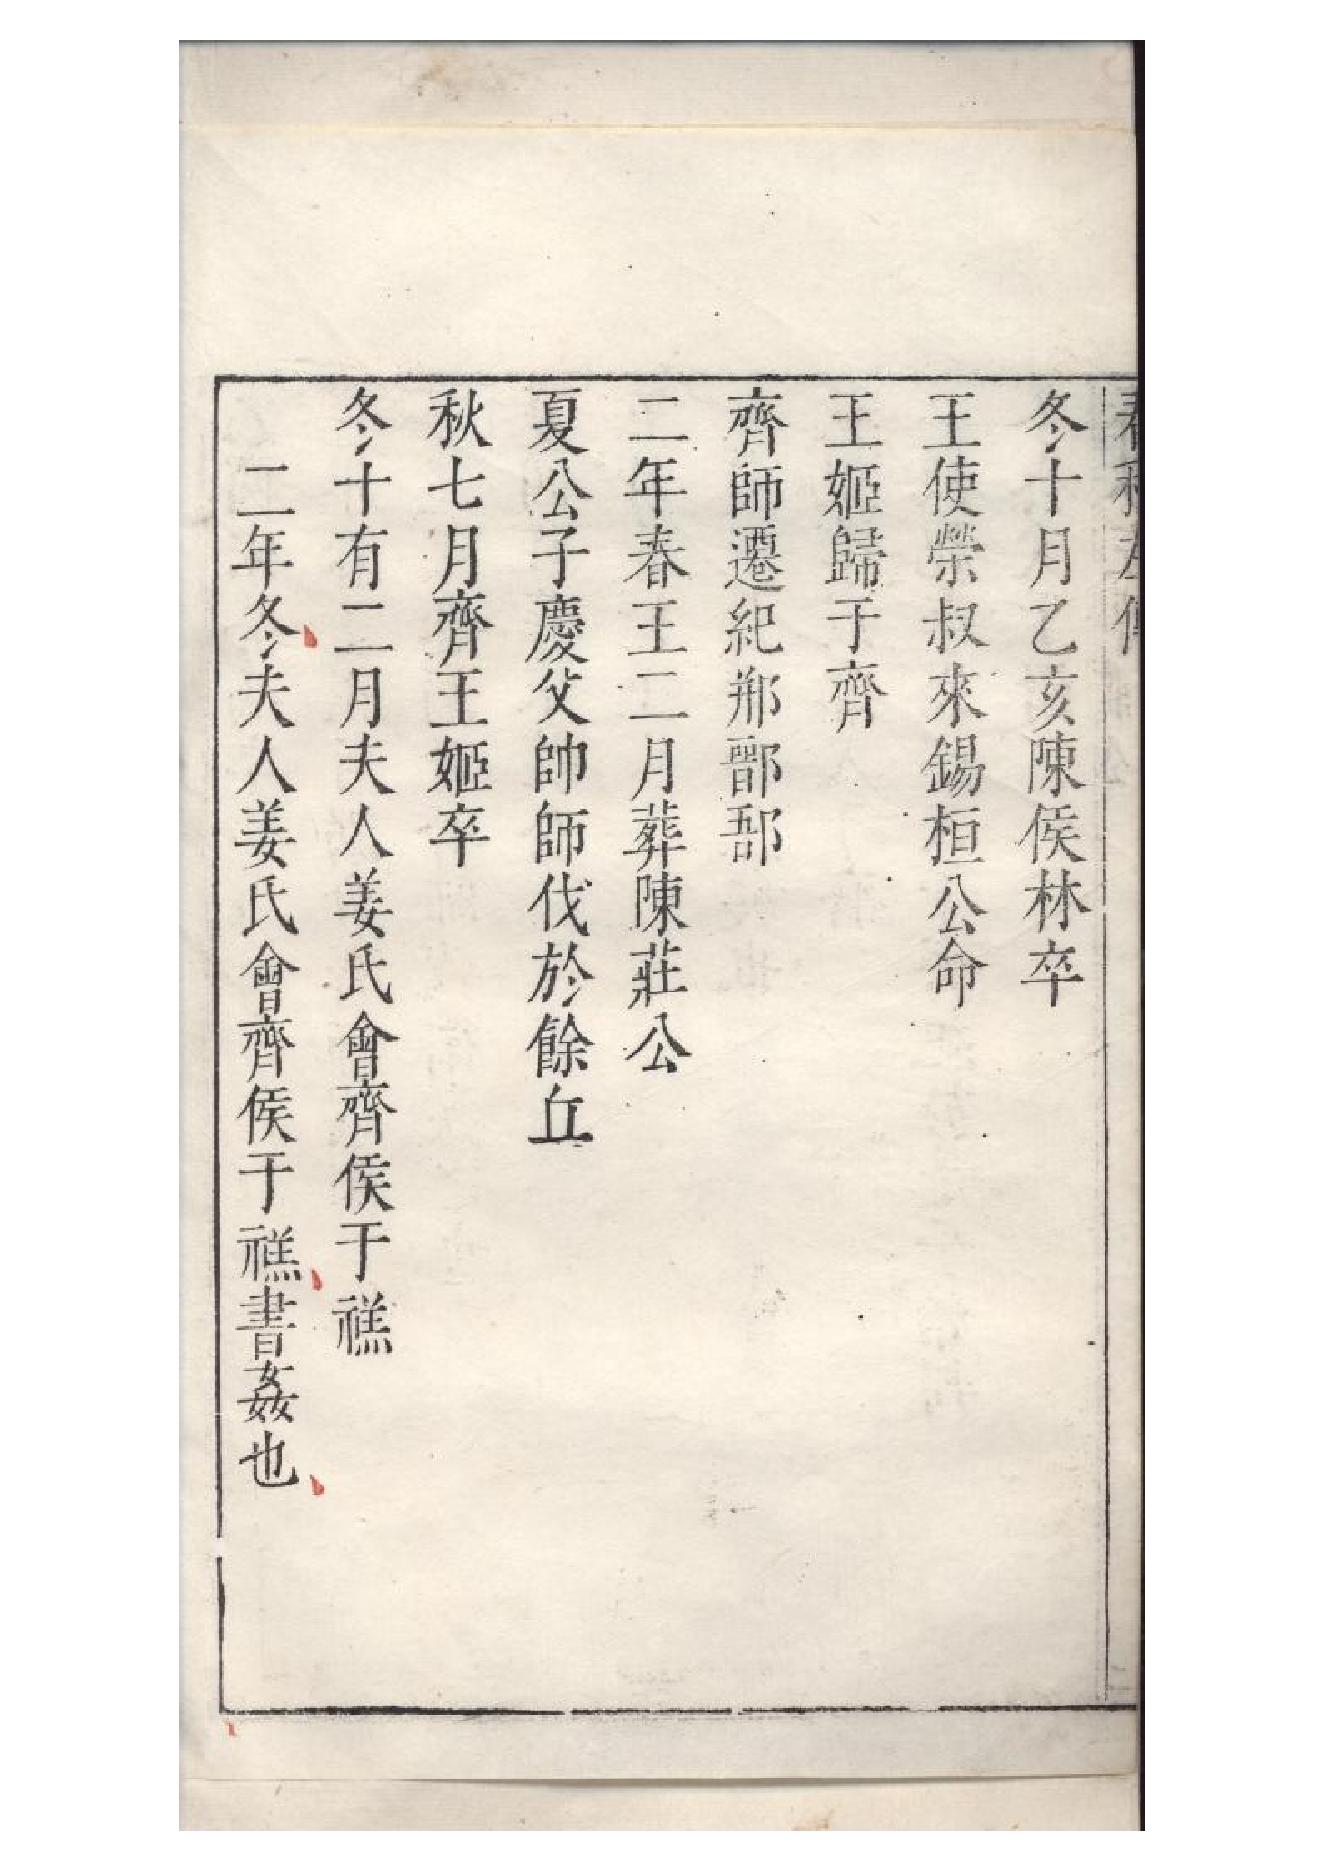 春秋左傳
冬十月乙亥陳侯林卒
王使榮叔來錫桓公命
王姬歸于齊
齊師遷紀郱鄑郚
二年春王二月葬陳莊公
夏公子慶父帥師伐於餘丘
秋七月齊王姬卒
冬十有二月夫人姜氏會齊侯于禚
二年冬夫人姜氏會齊侯于禚書姦也